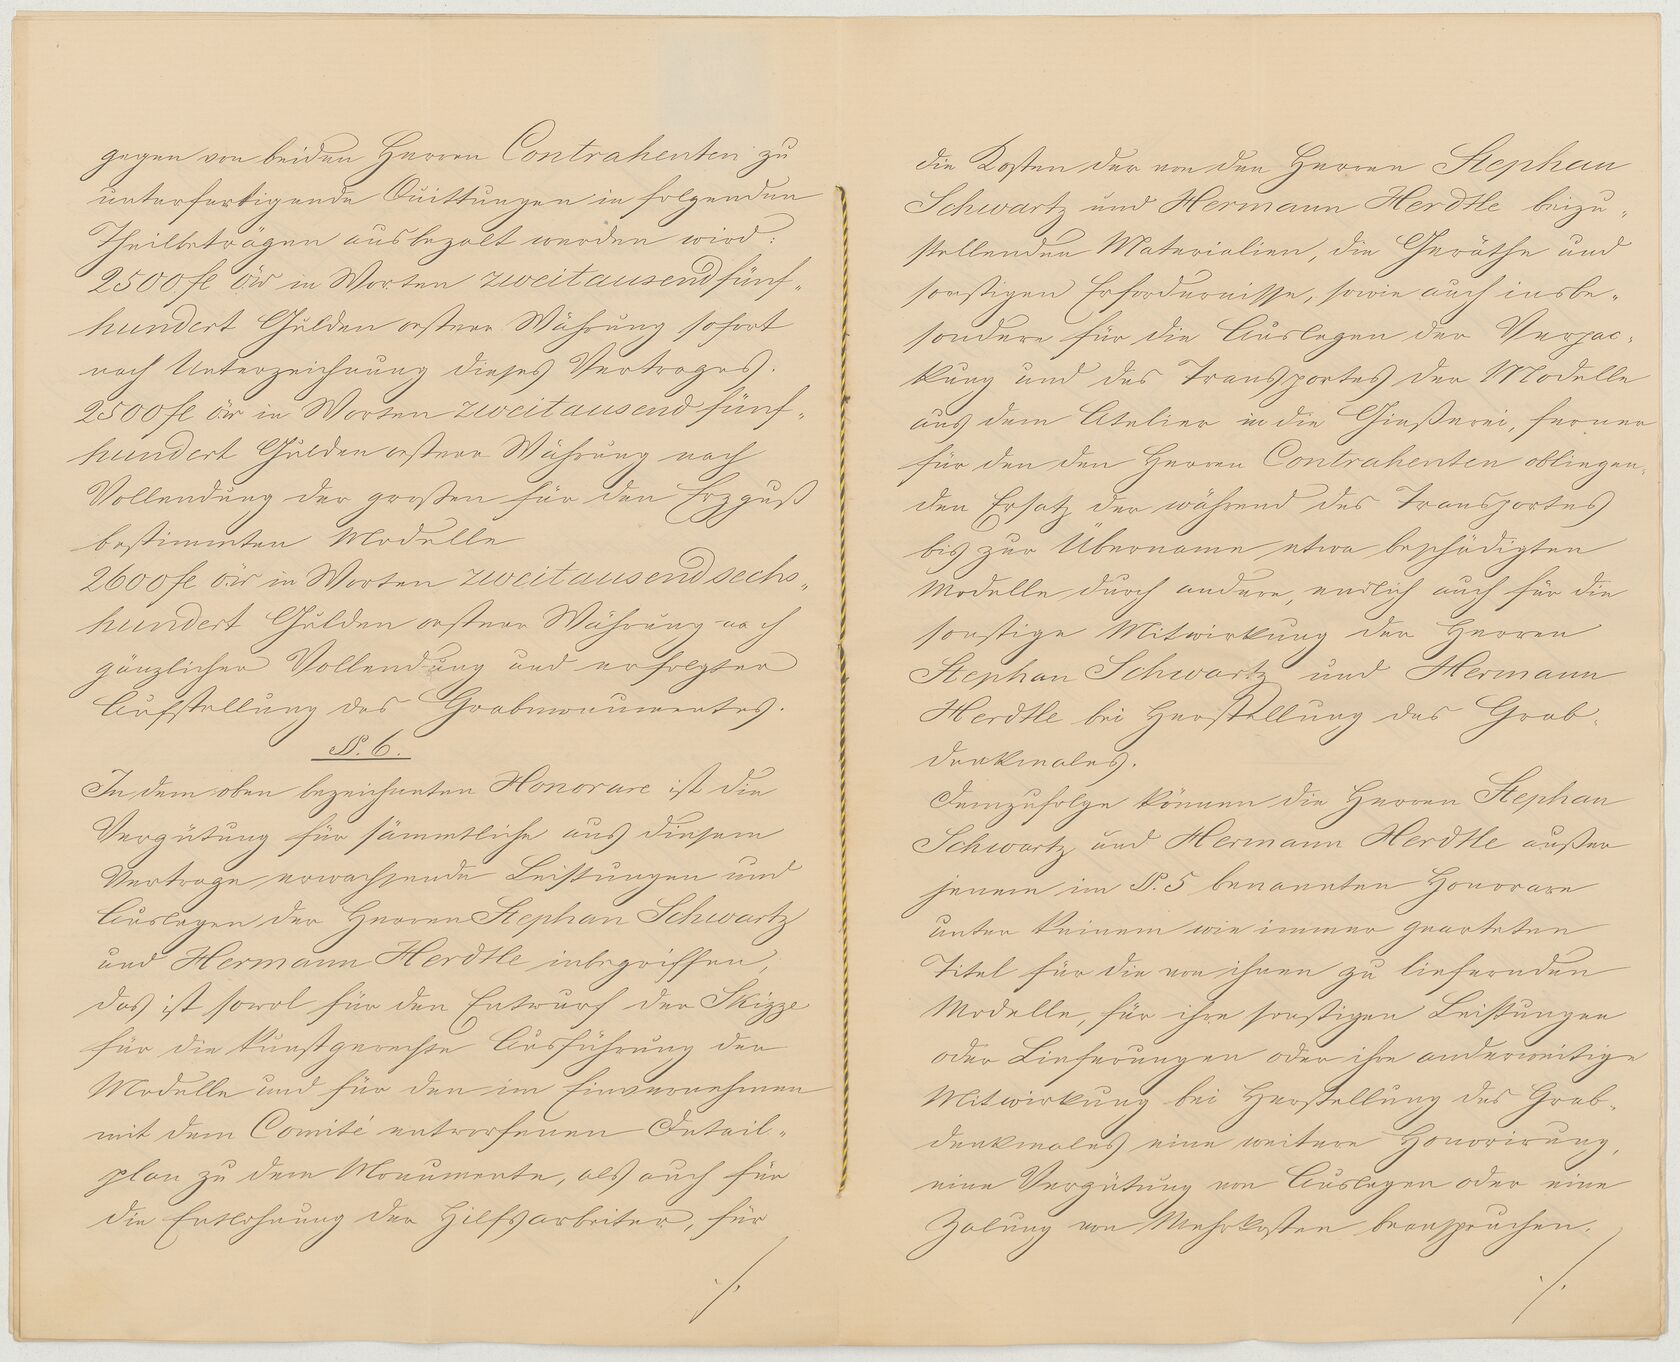 gegen von beiden Herren Contrahenten zu
unterfertigende Quittungen in folgenden
Theilbeträgen ausbezalt werden wird:
2500 fl öw in Worten zweitausendfünf-
hundert Gulden oesterr Währung sofort
nach Unterzeichnung dieses Vertrages.
2500 fl öw in Worten zweitausend fünf-
hundert Gulden oesterr Währung nach
Vollendung der großen für den Erzguß
bestimmten Modelle
2600 fl öw in Worten zweitausendsechs-
hundert Gulden oesterr Währung nach
gänzlicher Vollendung und erfolgter
Aufstellung des Grabmonumentes.
§. 6.
In dem oben bezeichneten Honorare ist die
Vergütung für sämmtliche aus diesem
Vertrage erwachsende Leistungen und
Auslagen der Herren Stephan Schwartz
und Hermann Herdtle inbegriffen,
das ist sowol für den Entwurf der Skizze
für die kunstgerechte Ausführung der
Modelle und für den im Einvernehmen
mit dem Comité entworfenen Detail-
plan zu dem Monumente, als auch für
die Entlohnung der Hilfsarbeiter, für
./.
die Kosten der von den Herren Stephan
Schwartz und Hermann Herdtle beizu-
stellenden Materialien, die Geräthe und
sonstigen Erfordernisse, sowie auch insbe-
sondere für die Auslagen der Verpac-
kung und des Transportes der Modelle
aus dem Atelier in die Gießerei, ferner
für den den Herren Contrahenten obliegen-
den Ersatz der während des Transportes
bis zur Übername etwa beschädigten
Modelle durch andere, endlich auch für die
sonstige Mitwirkung der Herren
Stephan Schwartz und Hermann
Herdtle bei Herstellung des Grab-
denkmales.
Demzufolge können die Herren Stephan
Schwartz und Hermann Herdtle außer
jenem im §. 5 benannten Honorare
unter keinem wie immer gearteten
Titel für die von ihnen zu liefernden
Modelle, für ihre sonstigen Leistungen
oder Lieferungen oder ihre anderweitige
Mitwirkung bei Herstellung des Grab-
denkmales eine weitere Honorirung,
eine Vergütung von Auslagen oder eine
Zalung von Mehrkosten beanspruchen.
./.